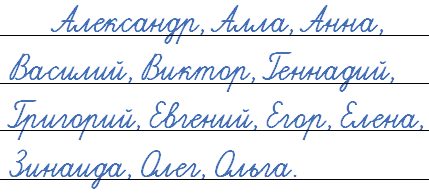 Александр, Алла, Анна,
Василий, Виктор, Геннадий,
Григорий, Евгений, Егор, Елена,
Зинаида, Олег, Ольга.